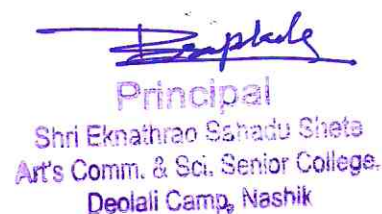 Principal
Shri Eknathrao Sahadu Shete
Art's Comm. & Sci. Senior College.
Deolali Camp, Nashik